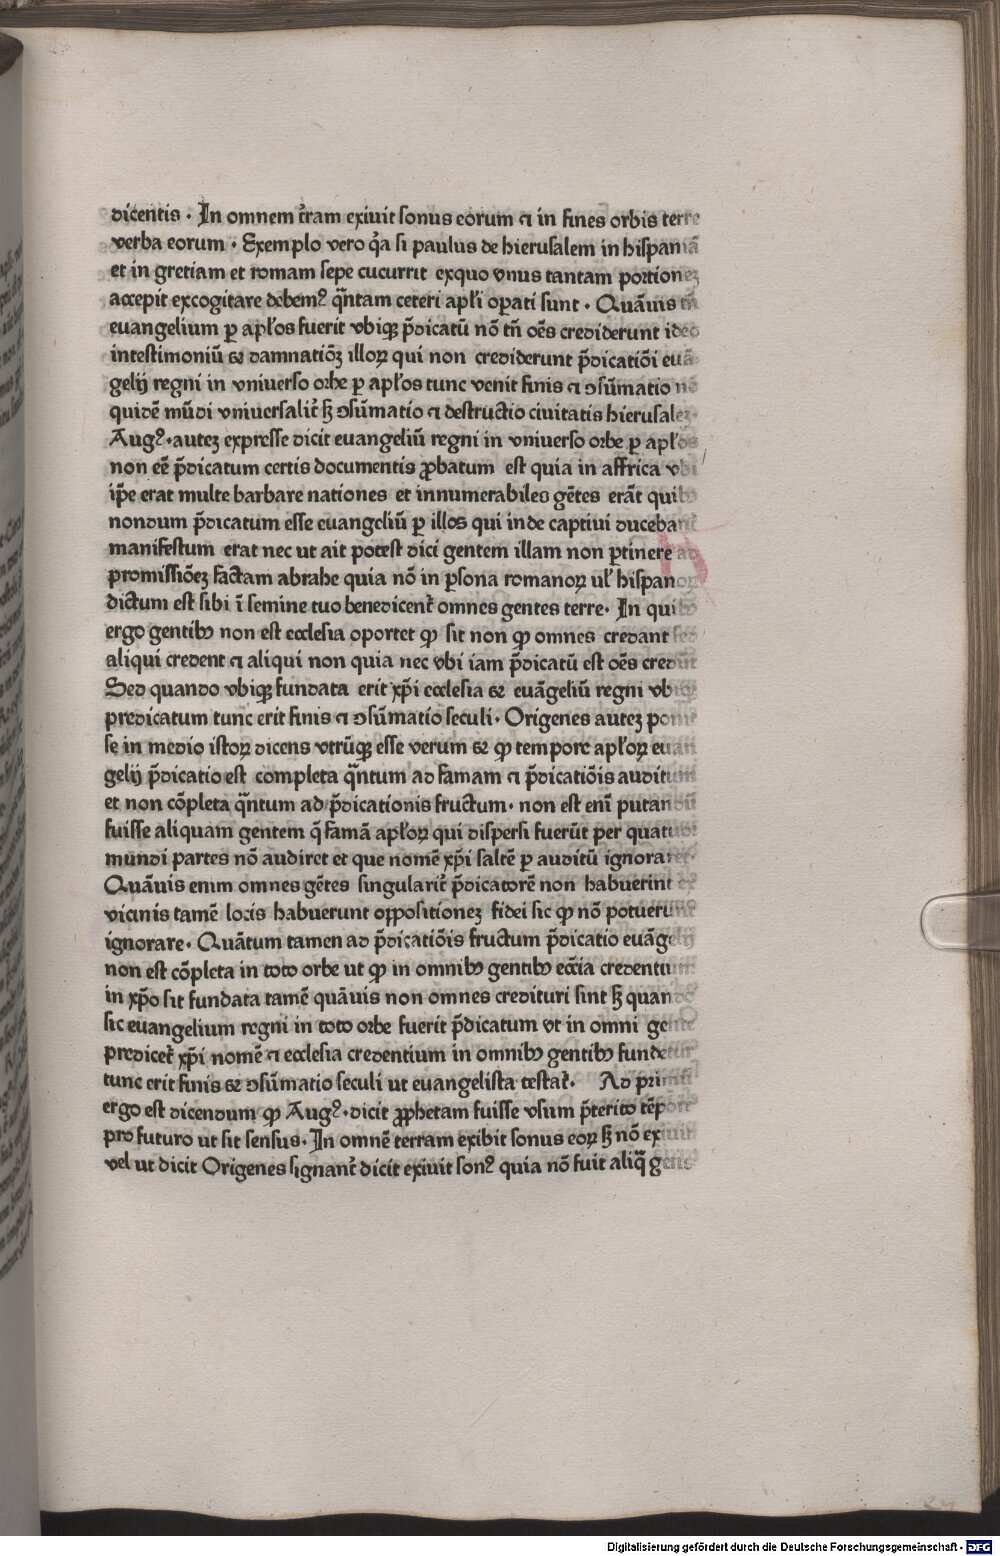 dicentis · In omnem t̄ram exiuit sonus eorum ⁊ in fines orbis terre
verba eorum · Exemplo vero q̄a si paulus de hierusalem in hispaniā
et in gretiam et romam sepe cucurrit exquo vnus tantam portionez
accepit excogitare debemꝰ q̄ntam ceteri apl'i oꝑati sunt · Quāuis tn̄
euangelium ꝑ apl'os fuerit vbiqꝫ p̄dicatū nō tn̄ oēs crediderunt ideo
intestimoniū & damnatiōꝫ illoꝝ qui non crediderunt p̄dicatiōi euā
gelij regni in vniuerso orbe ꝑ apl'os tunc venit finis ⁊ ↄsūmatio nō
quidē mūdi vniuersalit̄ sꝫ ↄsūmatio ⁊ destructio ciuitatis hierusalez·
Augꝰ·autez expresse dicit euangeliū regni in vniuerso orbe ꝑ apl'os
non eē p̄dicatum certis documentis ꝓbatum est quia in affrica vbi
ip̄e erat multe barbare nationes et innumerabiles gētes erāt quibꝫ
nondum p̄dicatum esse euangeliū ꝑ illos qui inde captiui ducebant̄
manifestum erat nec ut ait potest dici gentem illam non ꝑtinere ad
promissiōeꝫ factam abrahe quia nō in ꝑsona romanoꝝ ul' hispanoꝝ
dictum est sibi ī semine tuo benedicent̄ omnes gentes terre· In quibꝫ
ergo gentibꝫ non est ecclesia oportet ꝙ sit non ꝙ omnes credant sed
aliqui credent ⁊ aliqui non quia nec vbi iam p̄dicatū est oēs credūt
Sed quando vbiqꝫ fundata erit xp̄i ecclesia & euāgeliū regni vbiqꝫ
predicatum tunc erit finis ⁊ ↄsūmatio seculi· Origenes autez ponit
se in medio istoꝝ dicens vtrūqꝫ esse verum & ꝙ tempore apl'oꝝ euan
gelij p̄dicatio est completa q̄ntum ad famam ⁊ p̄dicatiōis auditum
et non cōpleta q̄ntum ad p̄dicationis fructum· non est enī putandū
fuisse aliquam gentem q̄ famā apl'oꝝ qui dispersi fuerūt per quatuor
mundi partes nō audiret et que nomē xp̄i saltē ꝑ auditū ignoraret·
Quāuis enim omnes gētes singularit̄ p̄dicatorē non habuerint ex
vicinis tamē locis habuerunt oppositionez fidei sic ꝙ nō potuerunt
ignorare· Quātum tamen ad p̄dicatiōis fructum p̄dicatio euāgelij
non est cōpleta in toto orbe ut ꝙ in omnibꝫ gentibꝫ ecc̄ia credentium
in xp̄o sit fundata tamē quāuis non omnes credituri sint sꝫ quando
sic euangelium regni in toto orbe fuerit p̄dicatum vt in omni gente
predicet̄ xp̄i nomē ⁊ ecclesia credentium in omnibꝫ gentibꝫ fundetur
tunc erit finis & ↄsūmatio seculi ut euangelista testat̄· Ad primū
ergo est dicendum ꝙ Augꝰ·dicit ꝓphetam fuisse vsum p̄terito tēpore
pro futuro ut sit sensus· In omnē terram exibit sonus eoꝝ sꝫ nō exiuit
vel ut dicit Origenes signant̄ dicit exiuit sonꝰ quia nō fuit aliq̄ gens
Digitalisierung gefördert durch die Deutsche Forschungsgemeinschaft · DFG